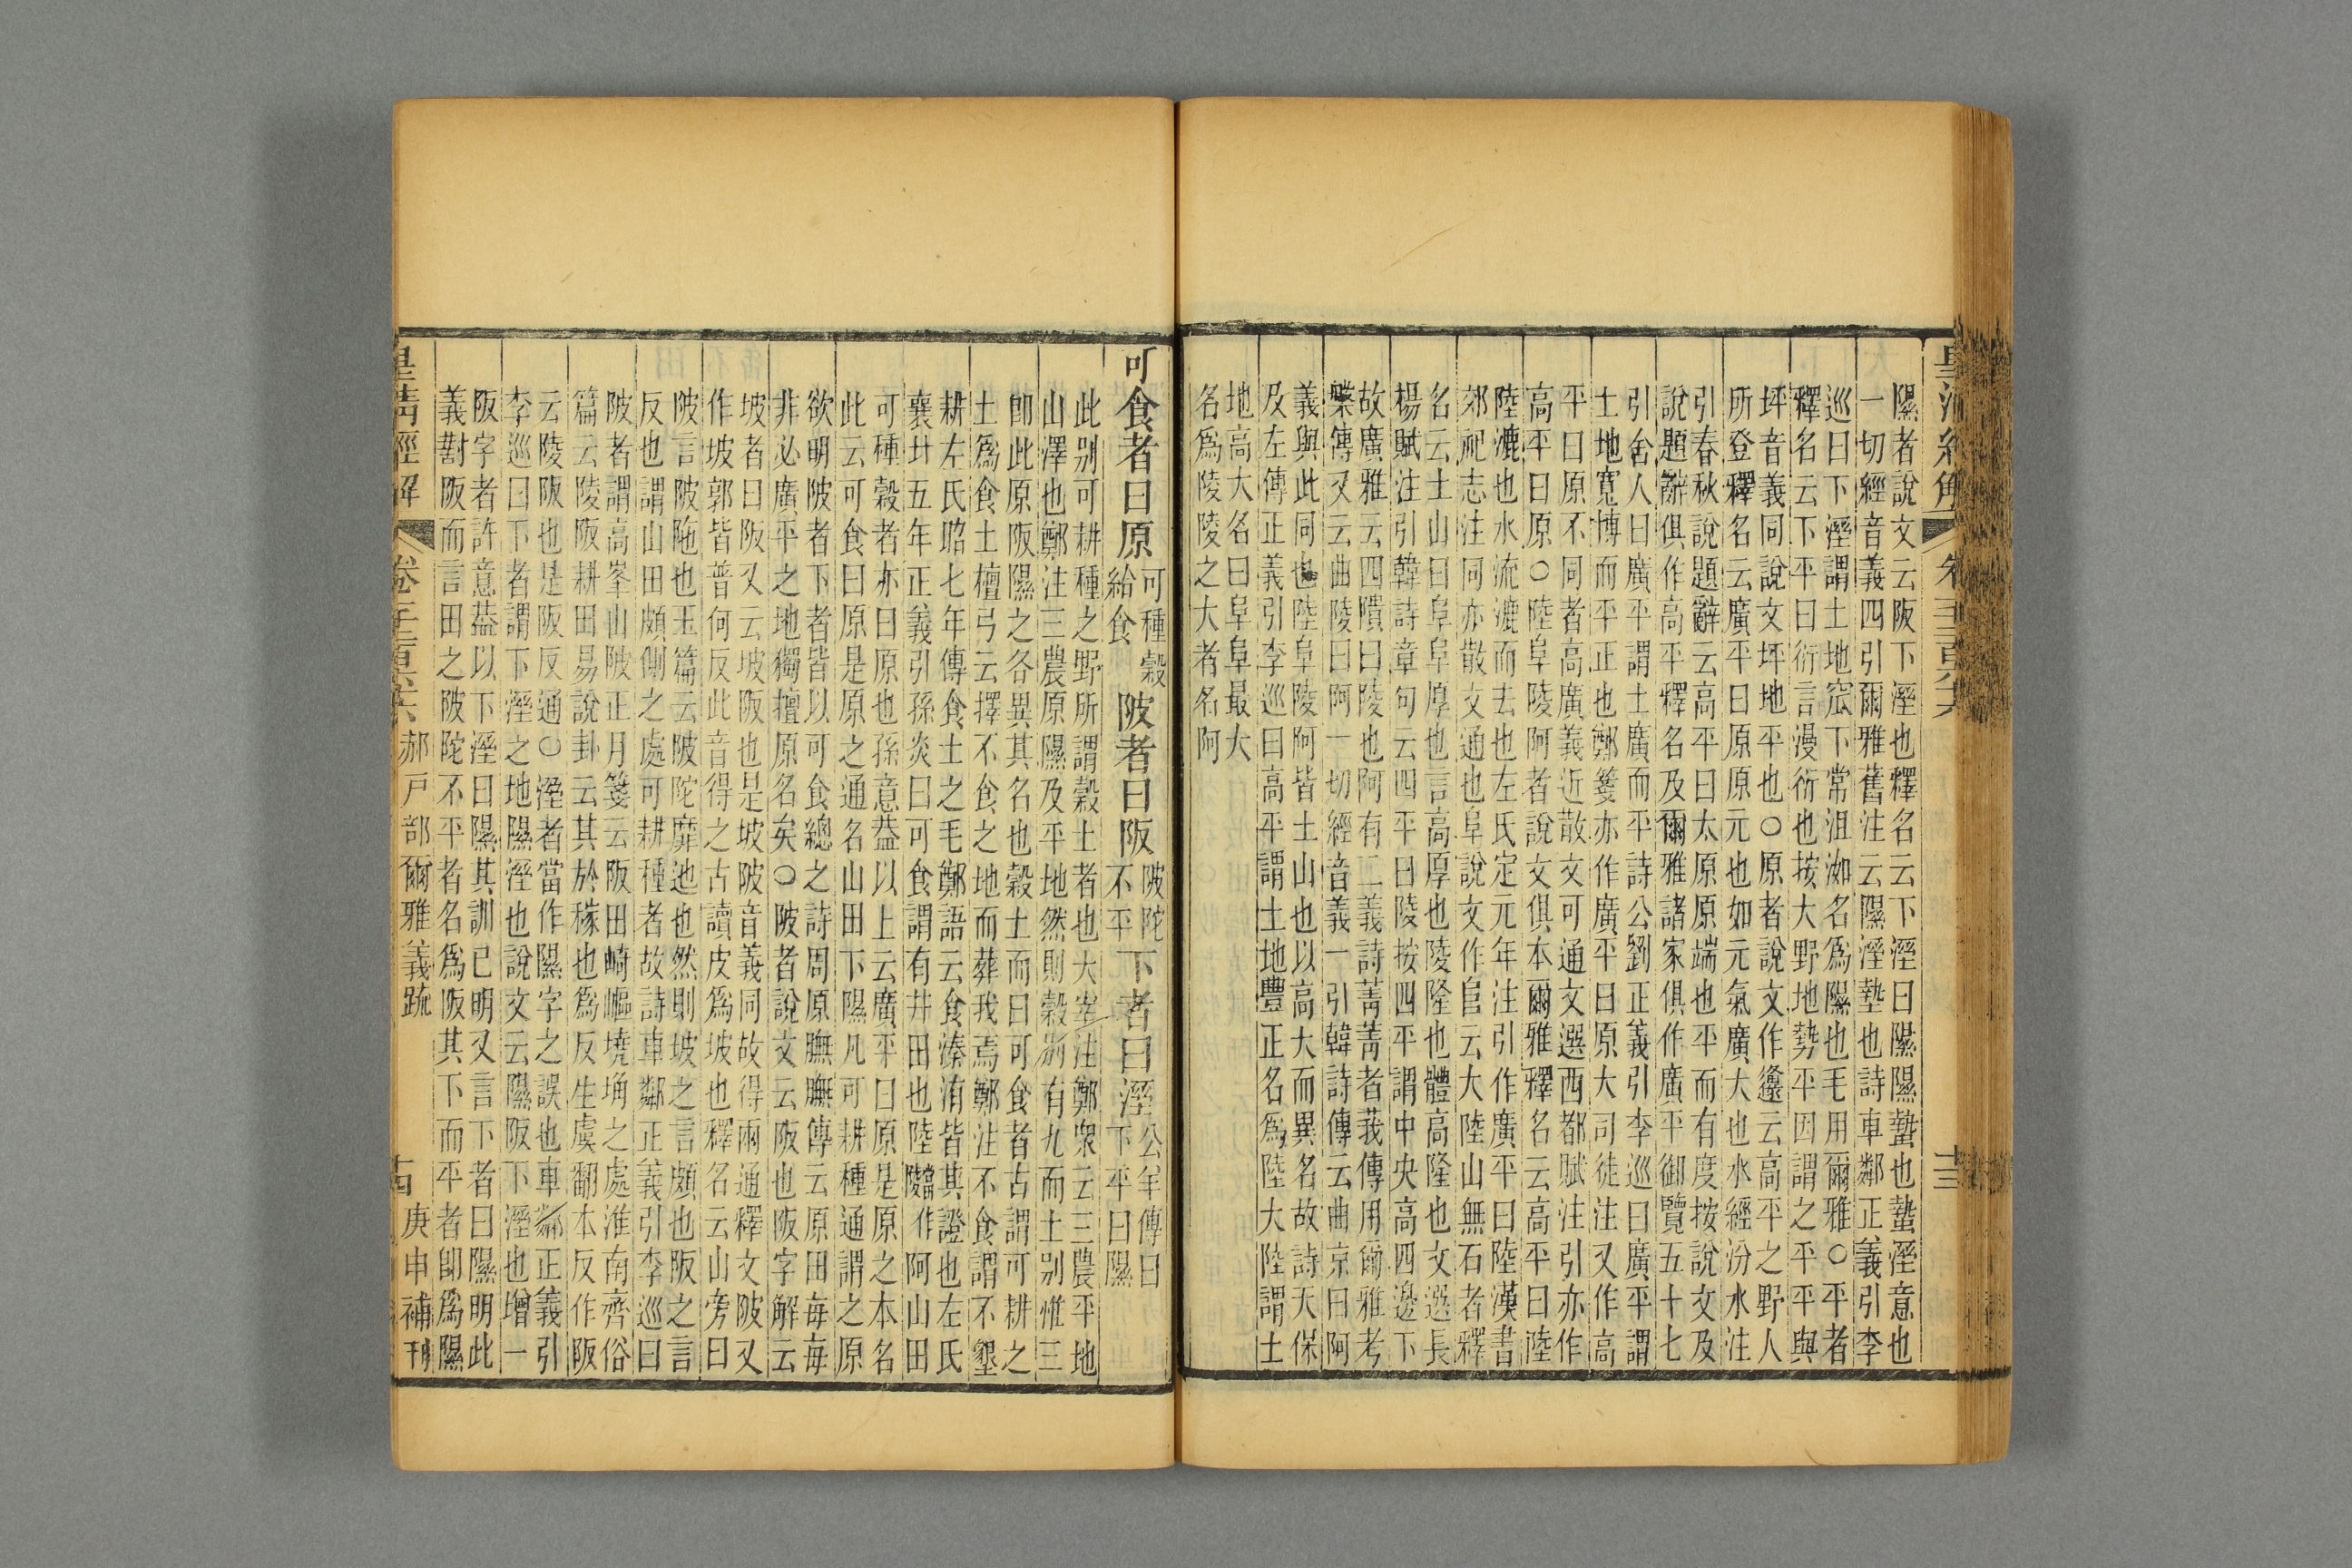 隰者說文云阪下溼也釋名云下溼曰隰隰蟄也蟄溼意也
一切經音義四引爾雅舊注云隰溼墊也詩車鄰正義引李
巡曰下溼謂土地窊下常沮洳名爲隰也毛用爾雅○平者
釋名云下平曰衍言漫衍也按大野地勢平因謂之平平與
坪音義同說文坪地平也○原者說文作邍云高平之野人
所登釋名云廣平曰原原元也如元氣廣大也水經汾水注
引春秋說題辭云高平曰太原原端也平而有度按說文及
說題辭俱作高平釋名及爾雅諸家俱作廣平御覽五十七
引舍人曰廣平謂土廣而平詩公劉正義引李巡曰廣平謂
土地寬博而平正也鄭箋亦作廣平曰原大司徒注又作高
平曰原不同者高廣義近散文可通文選西都賦注引亦作
高平曰原○陸阜陵阿者說文俱本爾雅釋名云高平曰陸
陸漉也水流漉而去也左氏定元年注引作廣平曰陸漢書
郊祀志注同亦散文通也阜說文作𨸏云大陸山無石者釋
名云土山曰阜阜厚也言高厚也陵隆也體高隆也文選長
楊賦注引韓詩章句云四平曰陵按四平謂中央高四邊下
故廣雅云四隤曰陵也阿有二義詩菁菁者莪傳用爾雅考
槃傳又云曲陵曰阿一切經音義一引韓詩傳云曲京曰阿
義與此同也陸阜陵阿皆土山也以高大而異名故詩天保
及左傳正義引李巡曰高平謂土地豐正名爲陸大陸謂土
地高大名曰阜阜最大
名爲陵陵之大者名阿
可食者曰原可種穀給食陂者曰阪陂陀不平下者曰溼公羊傳曰下平曰隰
此別可耕種之野所謂穀土者也大宰注鄭眾云三農平地
山澤也鄭注三農原隰及平地然則穀別有九而土別惟三
卽此原阪隰之各異其名也穀土而曰可食者古謂可耕之
土爲食土檀弓云擇不食之地而葬我焉鄭注不食謂不墾
耕左氏昭七年傳食土之毛鄭語云食溱洧皆其證也左氏
襄廿五年正義引孫炎曰可食謂有井田也陸𨼆作阿山田
可種穀者亦曰原也孫意葢以上云廣平曰原是原之本名
此云可食曰原是原之通名山田下隰凡可耕種通謂之原
欲明陂者下者皆以可食總之詩周原膴膴傳云原田每每
非必廣平之地獨擅原名矣○陂者說文云阪也阪字解云
坡者曰阪又云坡阪也是坡陂音義同故得兩通釋文陂又
作坡郭皆普何反此音得之古讀皮爲坡也釋名云山旁曰
陂言陂陁也玉篇云陂陀靡迆也然則坡之言頗也阪之言
反也謂山田頗側之處可耕種者故詩車鄰正義引李巡曰
陂者謂高峯山陂正月箋云阪田崎嶇墝埆之處淮南齊俗
篇云陵阪耕田易說卦云其於稼也爲反生虞翻本反作阪
云陵阪也是阪反通○溼者當作隰字之誤也車鄰正義引
李巡曰下者謂下溼之地隰溼也說文云隰阪下溼也增一
阪字者許意葢以下溼曰隰其訓已明又言下者曰隰明此
義對阪而言田之陂陀不平者名爲阪其下而平者卽爲隰
皇清經解 郝戶部爾雅義疏 十四 庚申補刊